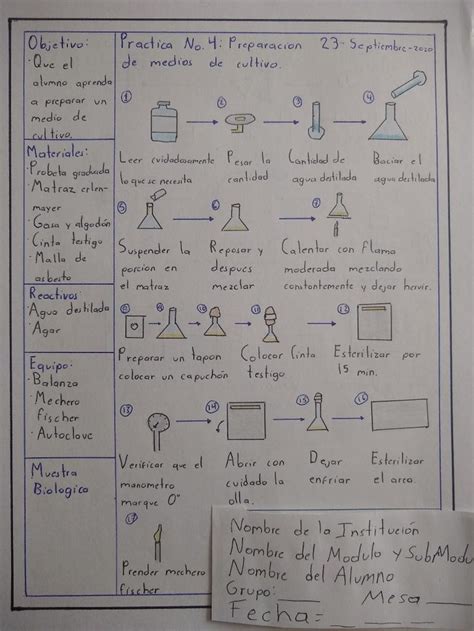 Objetivo:
· Que el
alumno aprenda
a preparar un
medio de
cultivo.
Materiales:
· Probeta graduada
· Matraz erlen-
mayer
· Gasa y algodón
· Cinta testigo
· Malla de
asbesto
Reactivos
· Agua destilada
· Agar
Equipo:
· Balanza
· Mechero
fischer
· Autoclave
Muestra
Biologica
Practica No. 4: Preparacion 23-Septiembre-2020
de medios de cultivo.
1 2 3 4
Leer cuidadosamente Pesar la Cantidad de Baciar el
lo que se necesita cantidad agua destilada agua destilada
5 6 7
Suspender la Reposar y Calentar con flama
porcion en despues moderada mezclando
el matraz mezclar constantemente y dejar hervir.
8 9 10 11 12
Preparar un tapon Colocar Cinta Esterilizar por
colocar un capuchón testigo 15 min.
13 14 15 16
Verificar que el Abrir con Dejar Esterilizar
manometro cuidado la enfriar el area.
marque 0" olla.
17
Prender mechero
fischer
Nombre de la Institución
Nombre del Modulo y SubModu
Nombre del Alumno
Grupo: ___ Mesa ___
Fecha= __ __ __